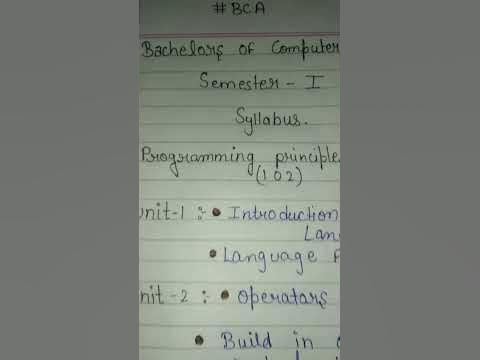 #BCA
Bachelors of Computer
Semester - I
Syllabus.
Programming principle
(102)
unit-1 :- • Introduction
Lan
• Language
unit-2 :- • operators
• Build in